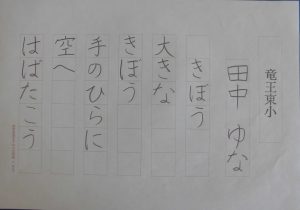 竜王東小
田中 ゆな
きぼう
大きな
きぼう
手のひらに
空へ
はばたこう